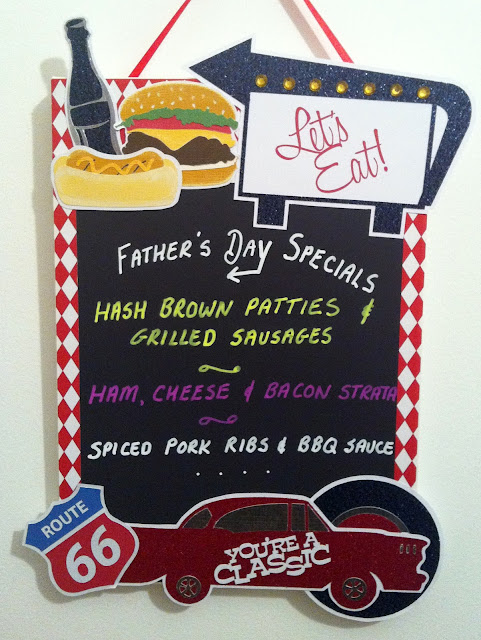 Let's
Eat!
FATHER'S DAY SPECIALS
HASH BROWN PATTIES &
GRILLED SAUSAGES
HAM, CHEESE & BACON STRATA
SPICED PORK RIBS & BBQ SAUCE
ROUTE
66
YOU'RE A
CLASSIC